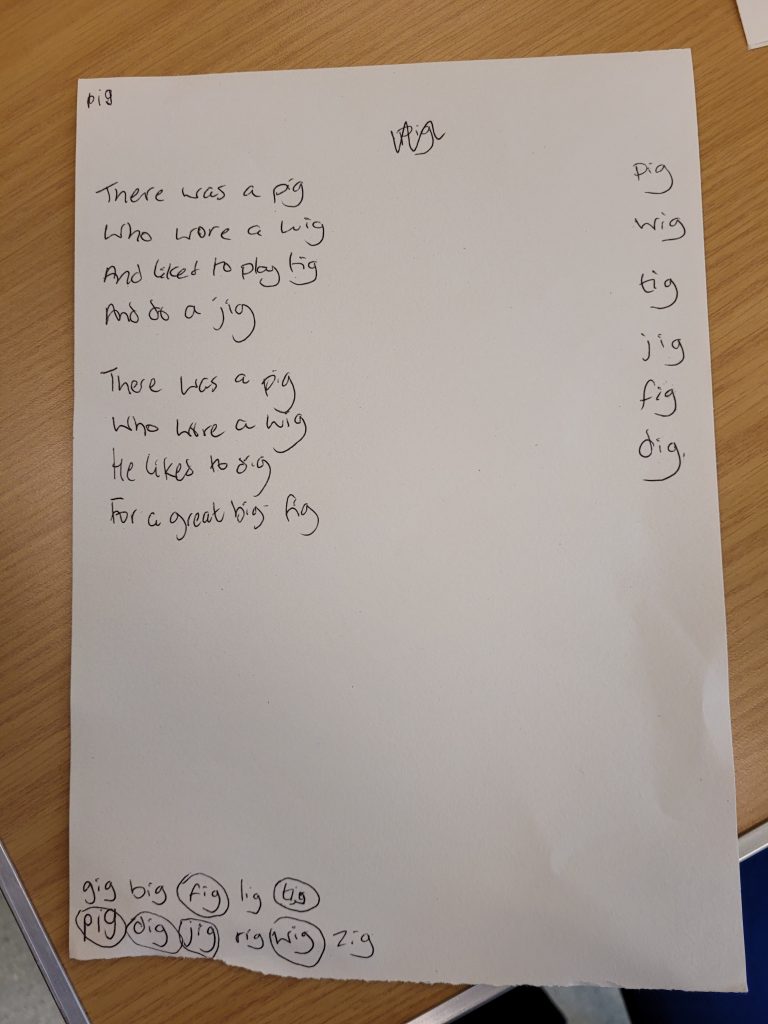 pig
There was a pig
Who wore a wig
And liked to play tig
And do a jig
There was a pig
Who wore a wig
He likes to dig
For a great big fig
pig
wig
tig
jig
fig
dig.
gig big fig lig tig
pig dig jig rig wig zig